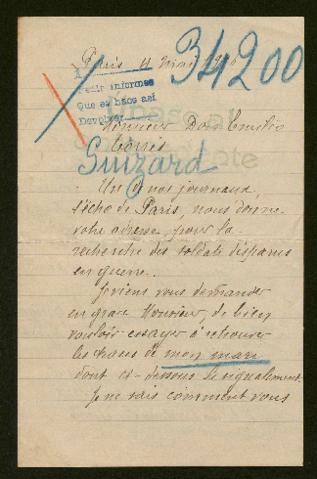 Paris 4 Mai 1916
34200
Pedir informes
Que se haga así
Devolver
Monsieur Don Emilio
Torres
Guizard
Un de nos journaux,
l'écho de Paris, nous donne
votre adresse pour la
recherche des soldats disparus
en guerre.
Je viens vous demander
en grâce Monsieur, de bien
vouloir essayer à retrouver
les traces de mon mari
dont ci-dessous le signalement.
Je ne sais comment vous